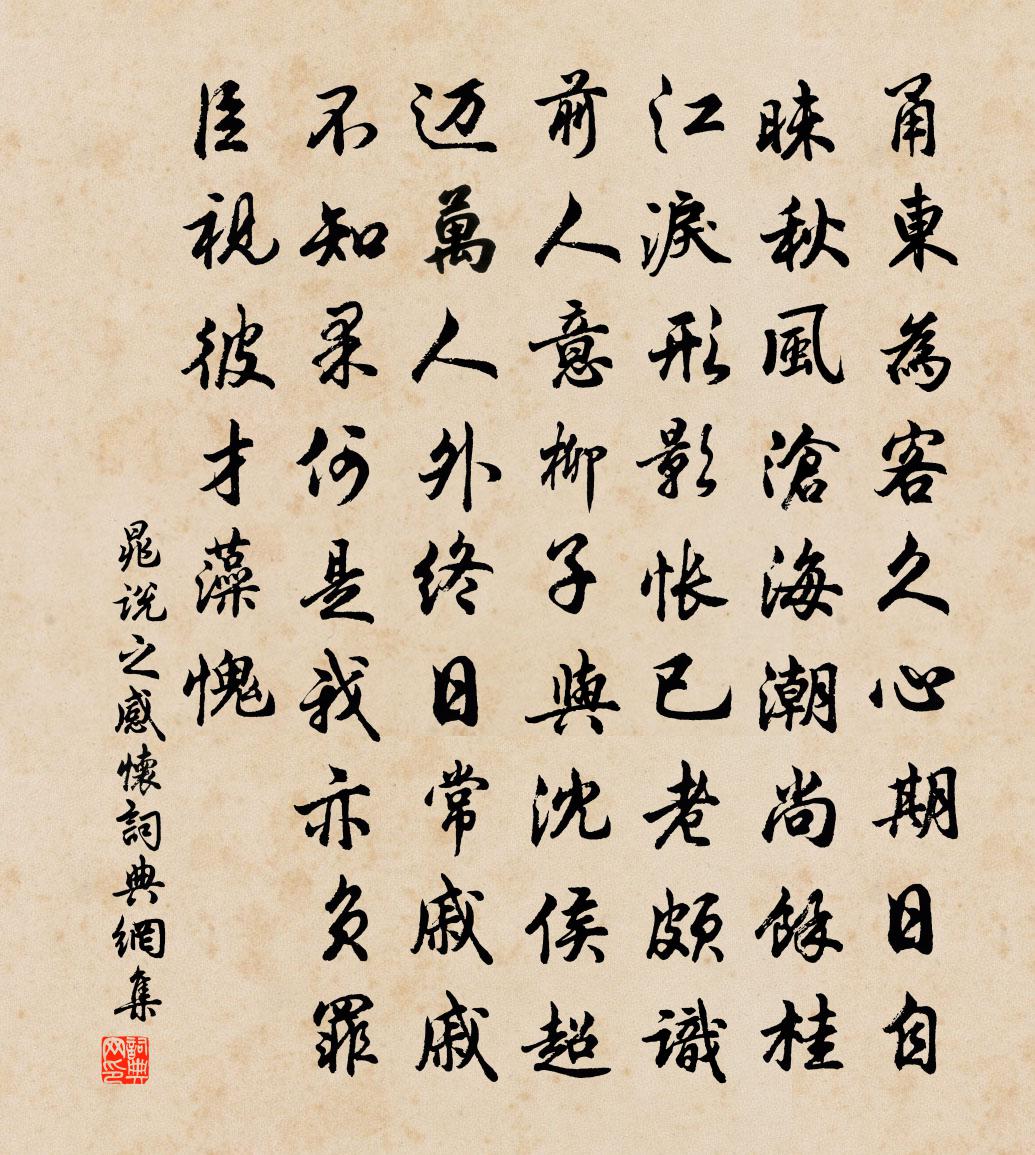 甬東為客久心期日自
昧秋風滄海潮尚餘桂
江淚形影悵已老頗識
前人意柳子與沈侯超
迈萬人外終日常戚戚
不知果何是我亦負罪
臣視彼才藻愧
晁說之感懷詞典網集
詞典网印